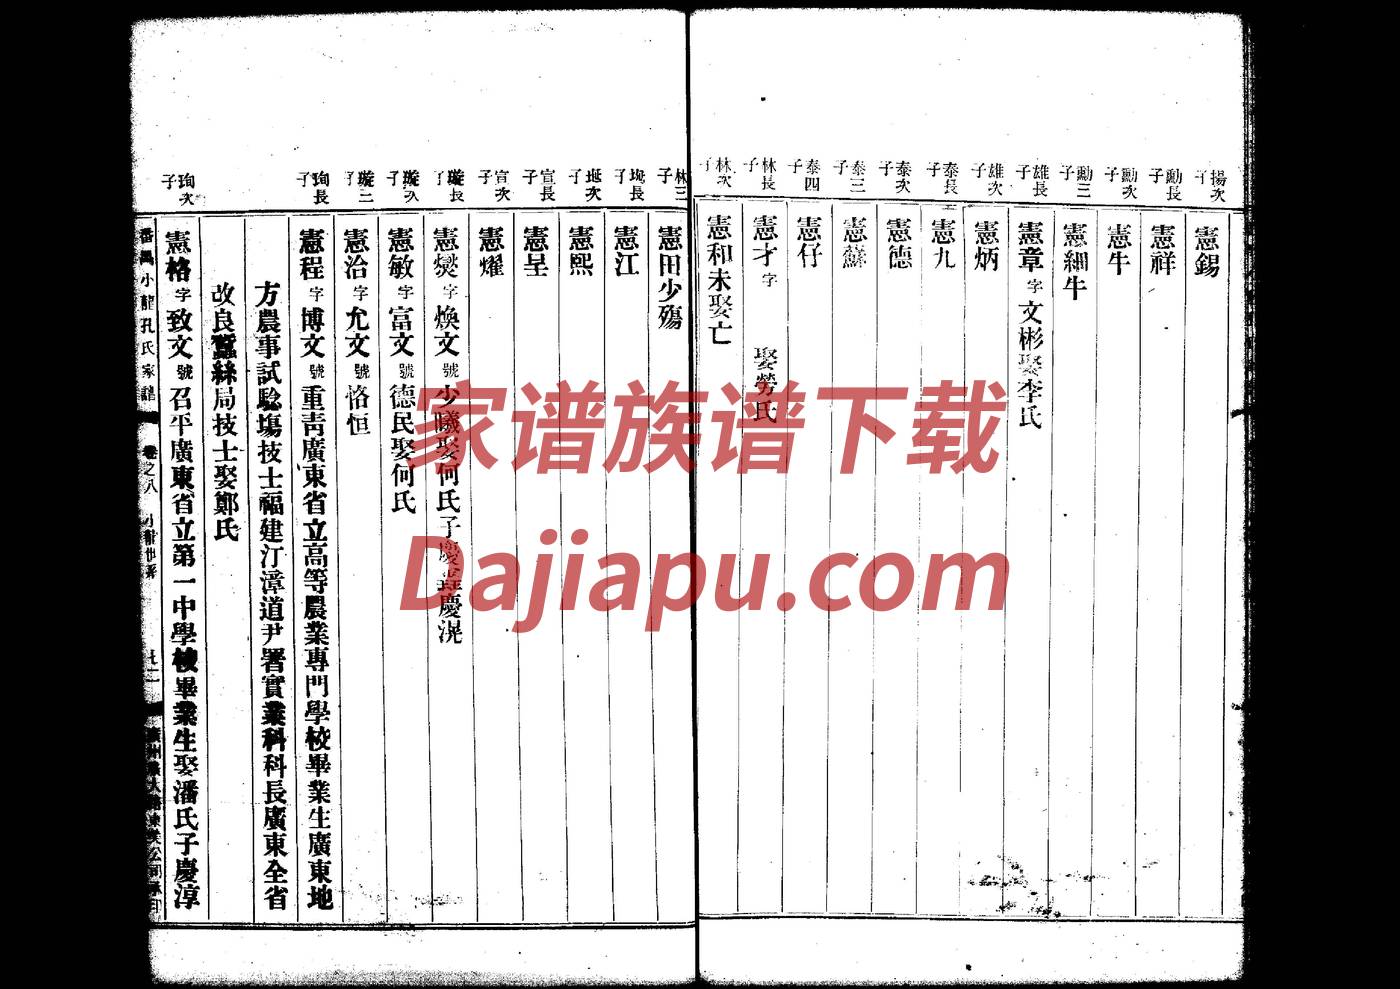 揚次子
憲錫
勳長子
憲祥
勳次子
憲牛
勳三子
憲細牛
雄長子
憲章字文彬娶李氏
雄次子
憲炳
泰長子
憲九
泰次子
憲德
泰三子
憲蘇
泰四子
憲仔
林長子
憲才字 娶勞氏
林次子
憲和未娶亡
林三子
憲田少殤
長子
憲江
次子
憲熙
宣長子
憲呈
宣次子
憲耀
璇長子
憲燮字煥文號少曦娶何氏子慶 慶滉
璇次子
憲敏字富文號德民娶何氏
璇三子
憲治字允文號恪恒
珣長子
憲程字博文號重靑廣東省立高等農業專門學校畢業生廣東地
方農事試驗塲技士福建汀漳道尹署實業科科長廣東全省
改良蠶絲局技士娶鄭氏
珣次子
憲格字致文號召平廣東省立第一中學校畢業生娶潘氏子慶淳
番禺小龍孔氏家譜
卷之八
家谱族谱下载
Dajiapu.com